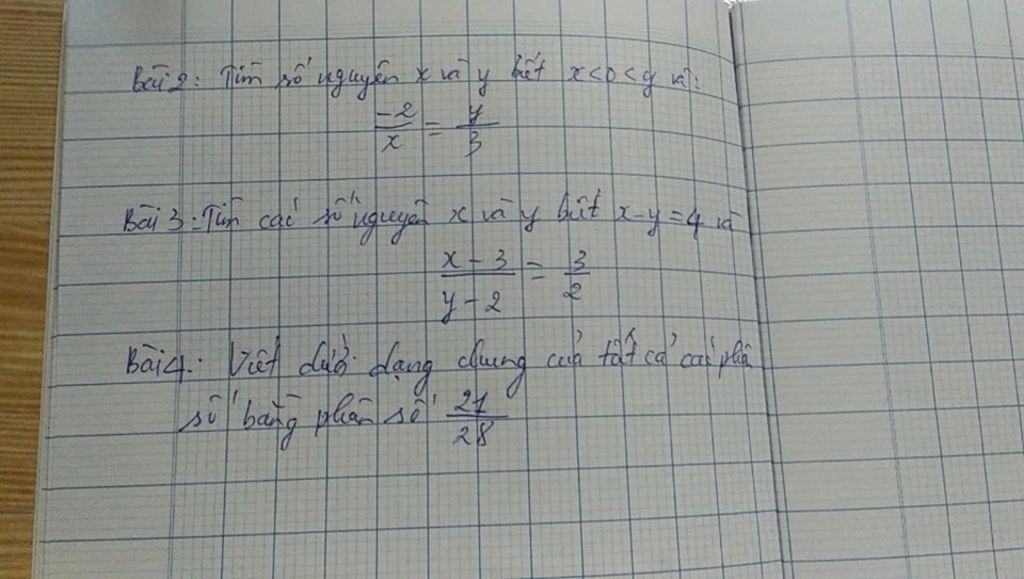 Bài 2: Tìm số nguyên x và y biết x < 0 < y và:
-2/x = y/3
Bài 3: Tìm các số nguyên x và y biết x-y=4 và
x-3/y-2 = 3/2
Bài 4: Viết dưới dạng chung của tất cả các phân
số bằng phân số 21/28